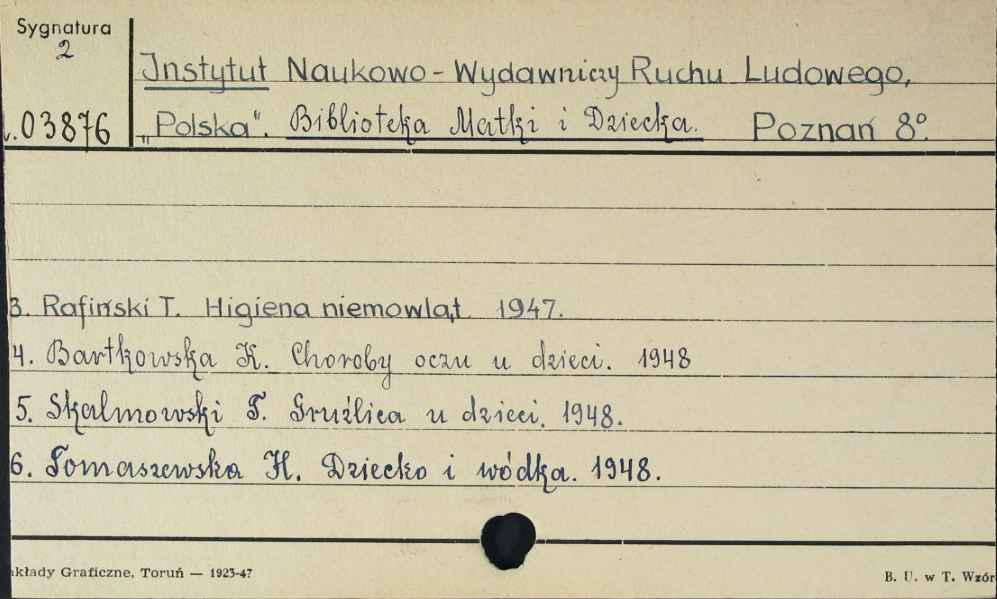 Sygnatura
2
03876
Instytut Naukowo - Wydawniczy Ruchu Ludowego,
„Polska“. Biblioteka Matki i Dziecka. Poznań 8°.
3. Rafiński T. Higiena niemowląt 1947.
4. Bartkowska K. Choroby oczu u dzieci. 1948
5. Skalmowski T. Gruźlica u dzieci. 1948.
6. Tomaszewska H. Dziecko i wódka. 1948.
kłady Graficzne, Toruń — 1923-47
B. U. w T. Wzór